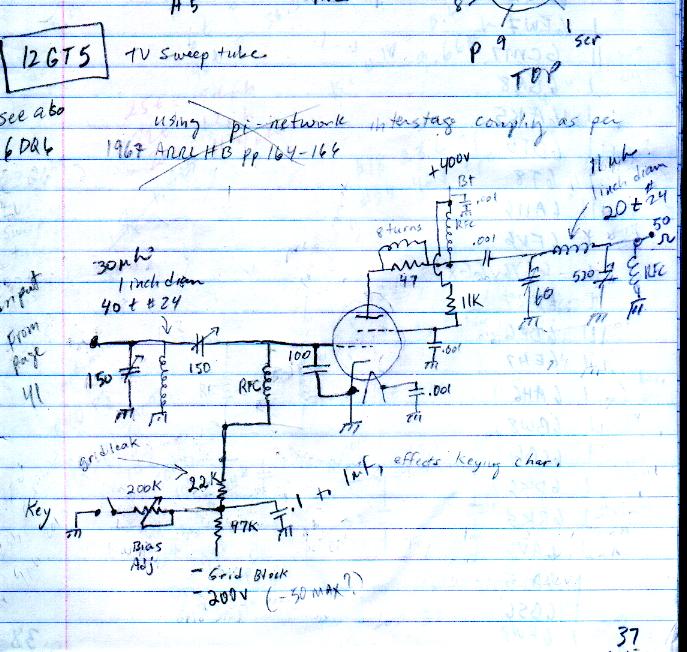 A5
8
P 9
1
scr
TOP
12GT5
TV Sweep tube
see also
6DQ6
using pi-network interstage coupling as per
1967 ARRL HB pp 164-166
+400v
B+
.001
RFC
11 µhy
1 inch diam
20 t #24
50
Ω
8 turns
47
.001
60
520
RFC
11K
.001
30µhy
1 inch diam
40 t #24
input
From
page
41
150
150
RFC
100
.001
grid leak
22K
.1 to 1mf, effects keying char.
200K
Key
Bias
Adj
47K
- Grid Block
- 200v (-50 MAX?)
37
38